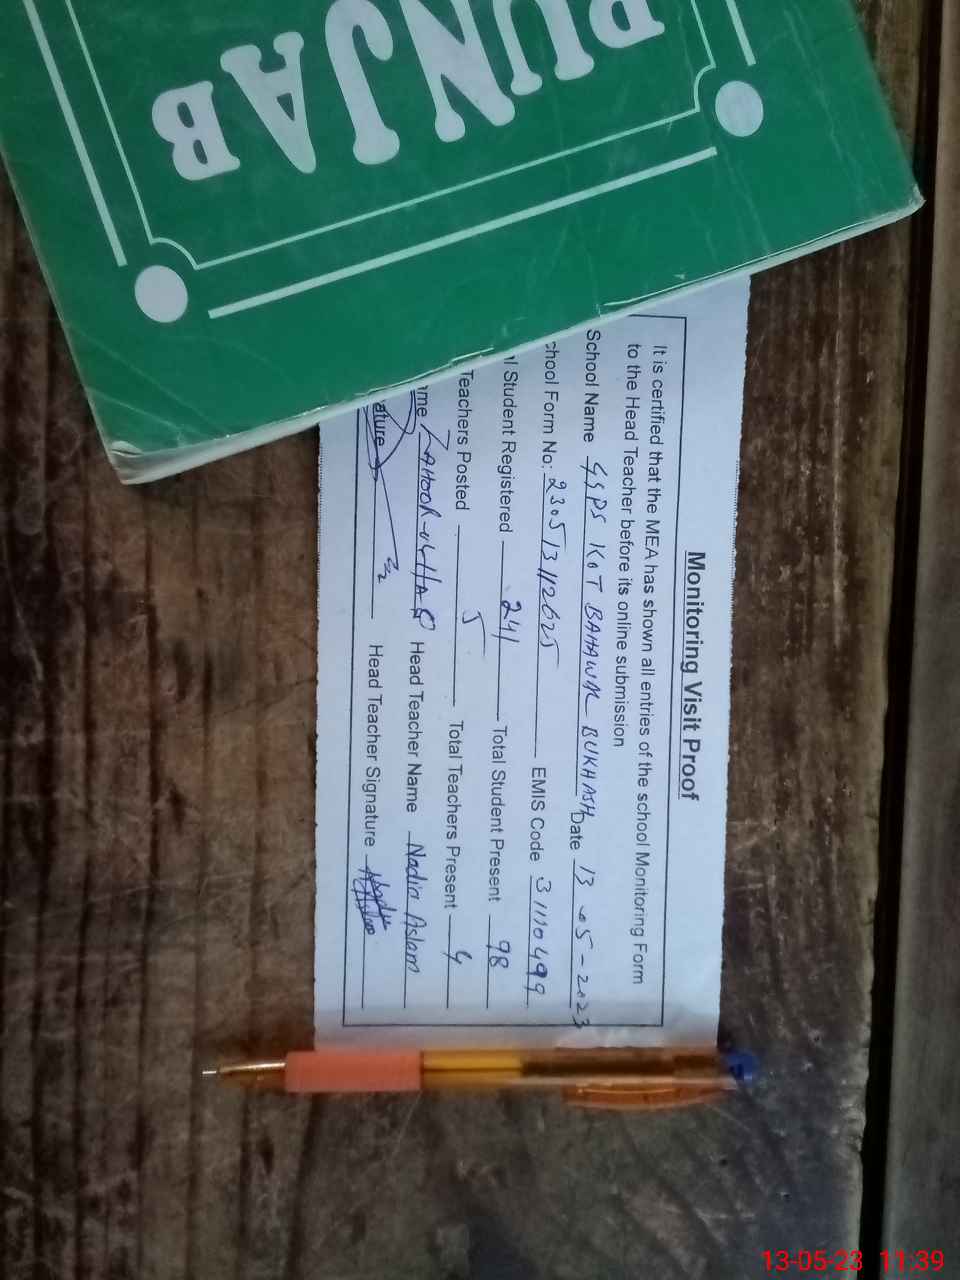 PUNJAB
Monitoring Visit Proof
It is certified that the MEA has shown all entries of the school Monitoring Form
to the Head Teacher before its online submission
School Name GGPS KOT BAHAWAL BUKHASH Date 13-05-2023
chool Form No: 230513112625 EMIS Code 31110499
l Student Registered 241 Total Student Present 98
Teachers Posted 5 Total Teachers Present 4
me ZAHOOR-UL-HAQ Head Teacher Name Nadia Aslam
ature Head Teacher Signature Nadia Aslam
13-05-23 11:39